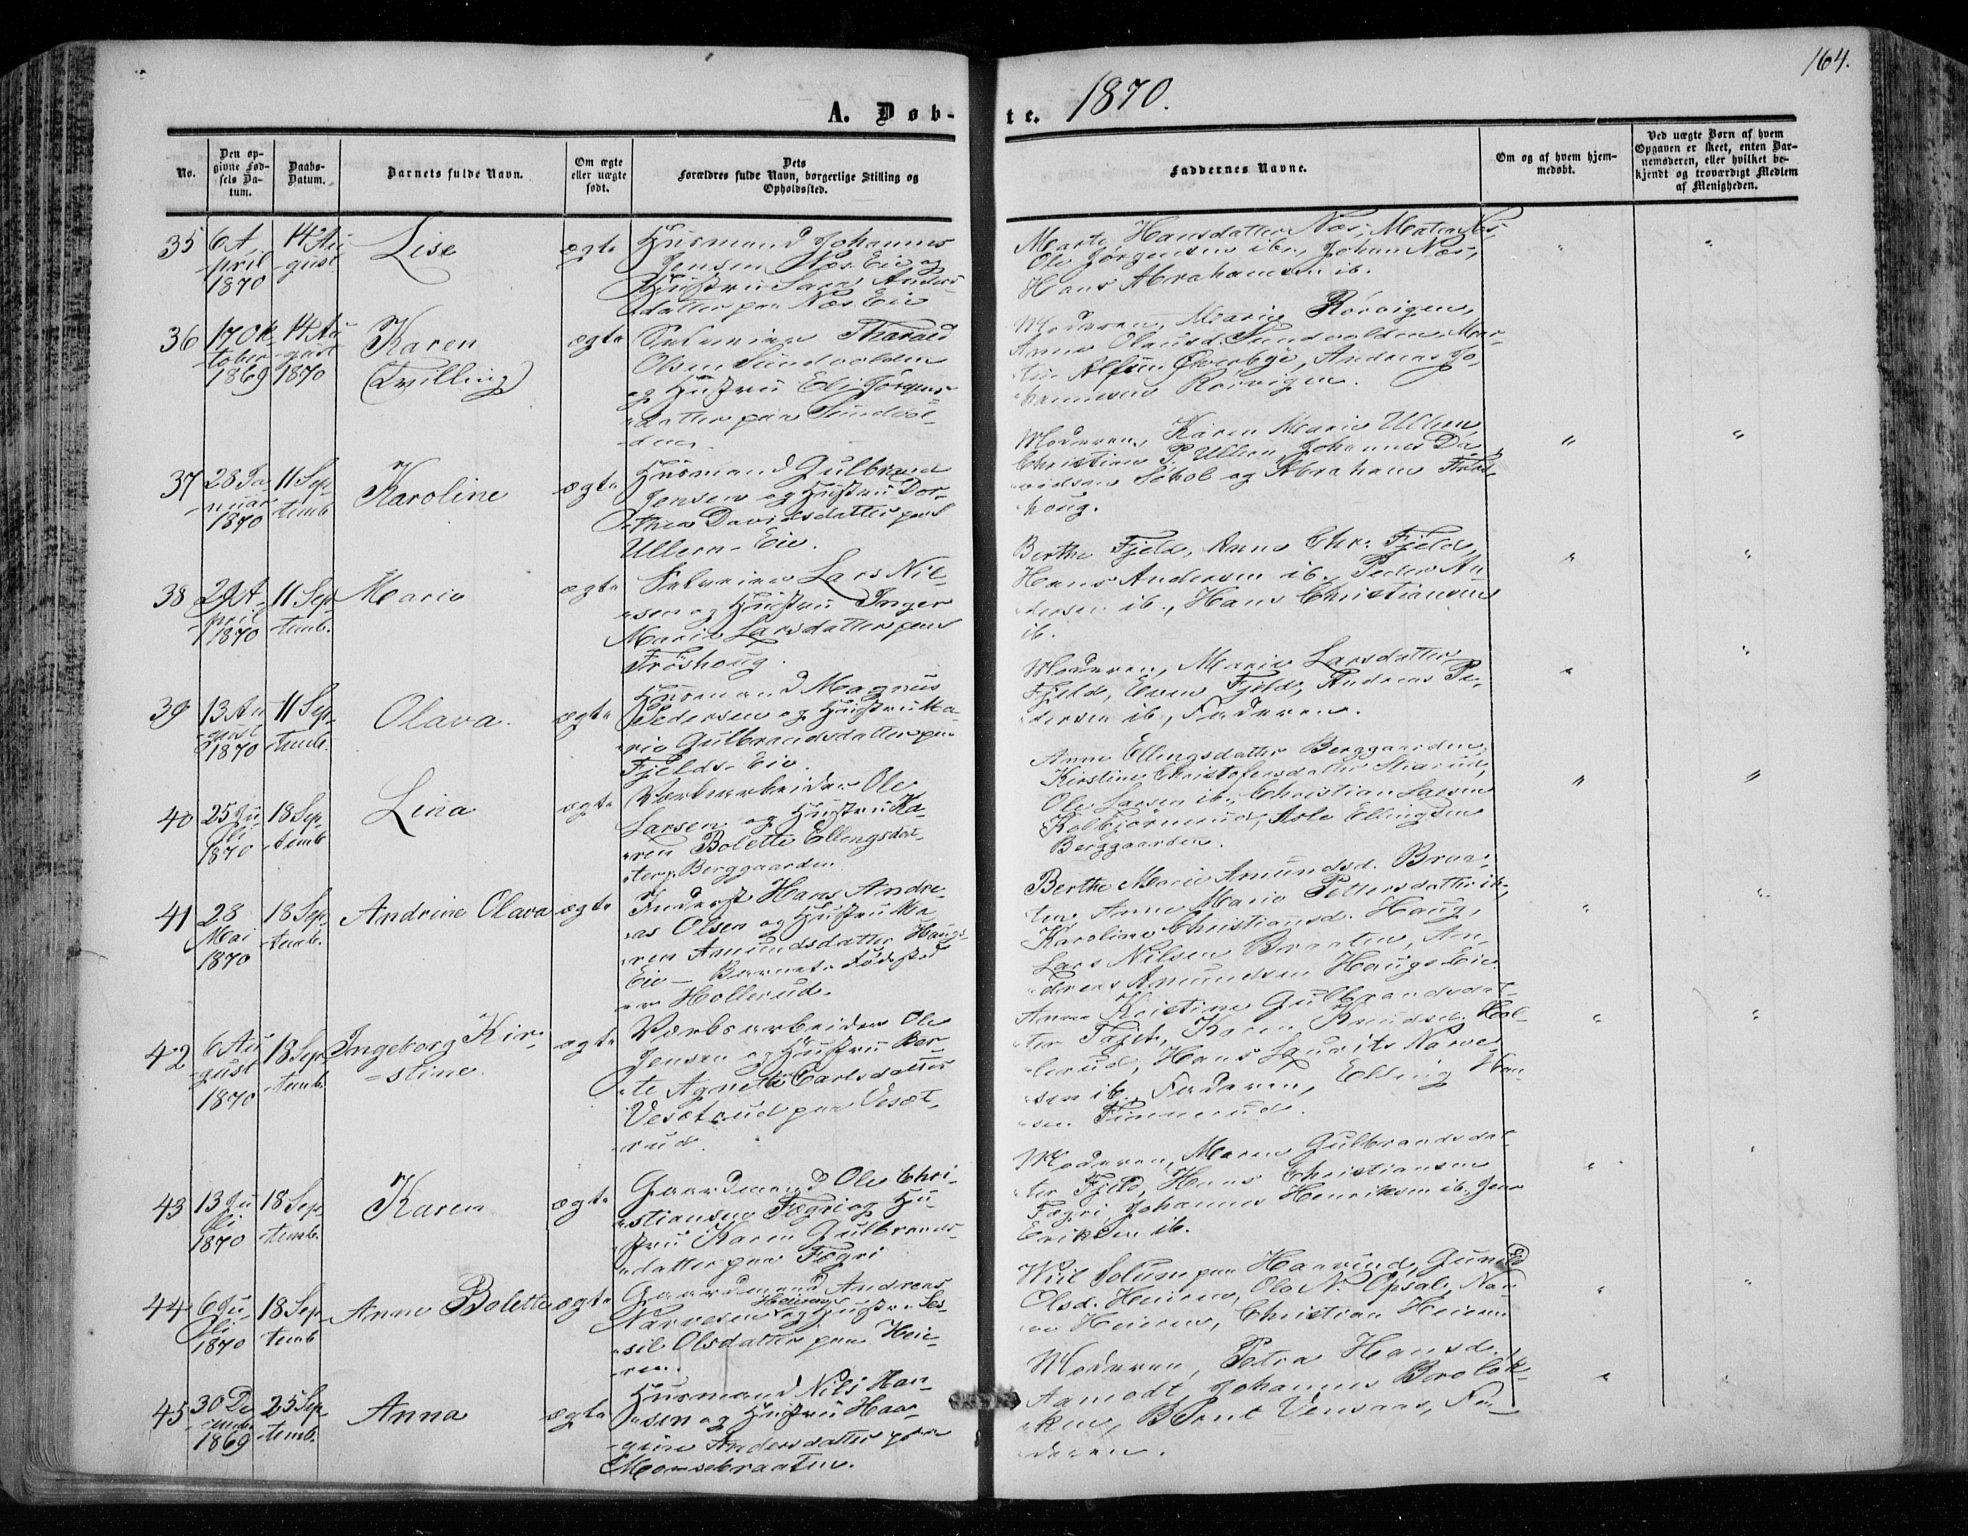 164.
A. Døb-
te. 1870.
No.
Den op-
givne Fød-
sels Da-
tum.
Daabs-
Datum.
Barnets fulde Navn.
Om ægte
eller uægte
født.
Dets
Forældres fulde Navn, borgerlige Stilling og
Opholdssted.
Faddernes Navne.
Om og af hvem hjem-
medøbt.
Ved uægte Børn af hvem
Opgaven er skeet, enten Bar-
nemoderen, eller hvilket be-
kjendt og troværdigt Medlem
af Menigheden.
35
6 A-
pril
1870
14 Au
gust
Lise
ægte
Husmand Johannes
Jensen Næs Eie og
Hustru Sara Anders
datter paa Næs Eie
Marte Hansdatter Næs, Mates Næs,
Ole Jørgensen ib., Johan Næs,
Hans Abrahamsen ib.
36
17 Ok
tober
1869
14 Au
gust
1870
Karen
(Tvilling)
ægte
Selveier Tharald
Olsen Sundvolden
og Hustru Eli Jørgens
datter paa Sundvol-
den.
Moderen, Marie Rørvigen,
Anne Olausd. Sundvolden, Mar-
tin Alfsen Øverbye, Andreas Jo
hannesen Rørvigen.
37
28 Ja
nuar
1870
11 Sep
temb
Karoline
ægte
Husmand Gulbrand
Jensen og Hustru Dor-
thea Davidsdatter paa
Ullern-Eie.
Moderen, Karen Marie Ullern,
Christian P. Ullern, Johannes Da-
vidsen Søhol og Abraham Frøs
houg.
38
29 A-
pril
1870
11 Sep
temb.
Marie
ægte
Selveier Lars Nil-
sen og Hustru Inger
Marie Larsdatter paa
Frøshoug.
Berthe Fjeld, Anne Chr. Fjeld,
Hans Andersen ib., Peder An
dersen ib., Hans Christiansen
ib.
39
13 Au
gust
1870
11 Sep
temb.
Olava.
ægte
Husmand Magnus
Pedersen og Hustru Ma-
rie Gulbrandsdatter paa
Fjelds-Eie.
Moderen, Marie Larsdatter
Fjeld, Even Fjeld, Andreas Pe-
dersen ib., Faderen.
40
25 Ju
li
1870
18 Sep-
temb
Lina
ægte
Værksarbeider Ole
Larsen og Hustru Ka-
ren Bolette Ellingsdat-
ter p. Berggaarden
Anne Ellingsdatter Berggaarden,
Kirstine Christofersdatter Stiarud,
Ole Larsen ib., Christian Larsen
Kolbjørnrud, Asle Ellingsen
Berggaarden.
41
28
Mai
1870
18 Sep
temb.
Andrine Olava
ægte
Inderst Hans Andre-
as Olsen og Hustru Ma
ren Amundsdatter Haugs
Eie – Barnets Fødested
er Hollerud.
Berthe Marie Amundsd. Braa-
ten, Anne Marie Pettersdatter ib.,
Karoline Christiansd. Haug,
Lars Nilsen Braaten, An-
dreas Amundsen Haugs Eie.
42
6 Au
gust
1870
18 Sep
temb.
Ingeborg Kir-
stine.
ægte
Værksarbeider Ole
Jensen og Hustru Ber-
te Agnete Carlsdatter
Vesætrud paa Vesæt-
rud.
Anne Kristine Gulbrandsdat-
ter Fajet, Karen Knudsd. Hol-
lerud, Hans Laurits Narve-
sen ib. Faderen, Elling Han-
sen Finnerud.
43
13 Ju
li
1870
18 Sep
temb.
Karen
ægte
Gaardmand Ole Chri-
stiansen Fægri og Hu-
stru Karen Gulbrands-
datter paa Fægri
Moderen, Maren Gulbrandsdat-
ter Fjeld, Hans Christiansen
Fægri, Johannes Henriksen ib. Jens
Eriksen ib.
44
6 Ju
li
1870
18 Sep
temb
Anne Bolette
ægte
Gaardmand Andreas
Narvesen Heieren og Hustru Ses-
sil Olsdatter paa Heie-
ren.
Wiil Solum paa Haavind, Gunild
Olsd. Heieren, Ole N. Opsal, Nar
ve Heieren, Christian Heieren
45
30 De
cember
1869
25 Sep
temb.
Anna
ægte
Husmand Nils Han-
sen og Hustru Haa-
gine Andersdatter paa
Monsebraaten.
Moderen, Petra Hansd.
Aamodt, Johannes Broløk-
ken, Bernt Vensaas, Fa-
deren.